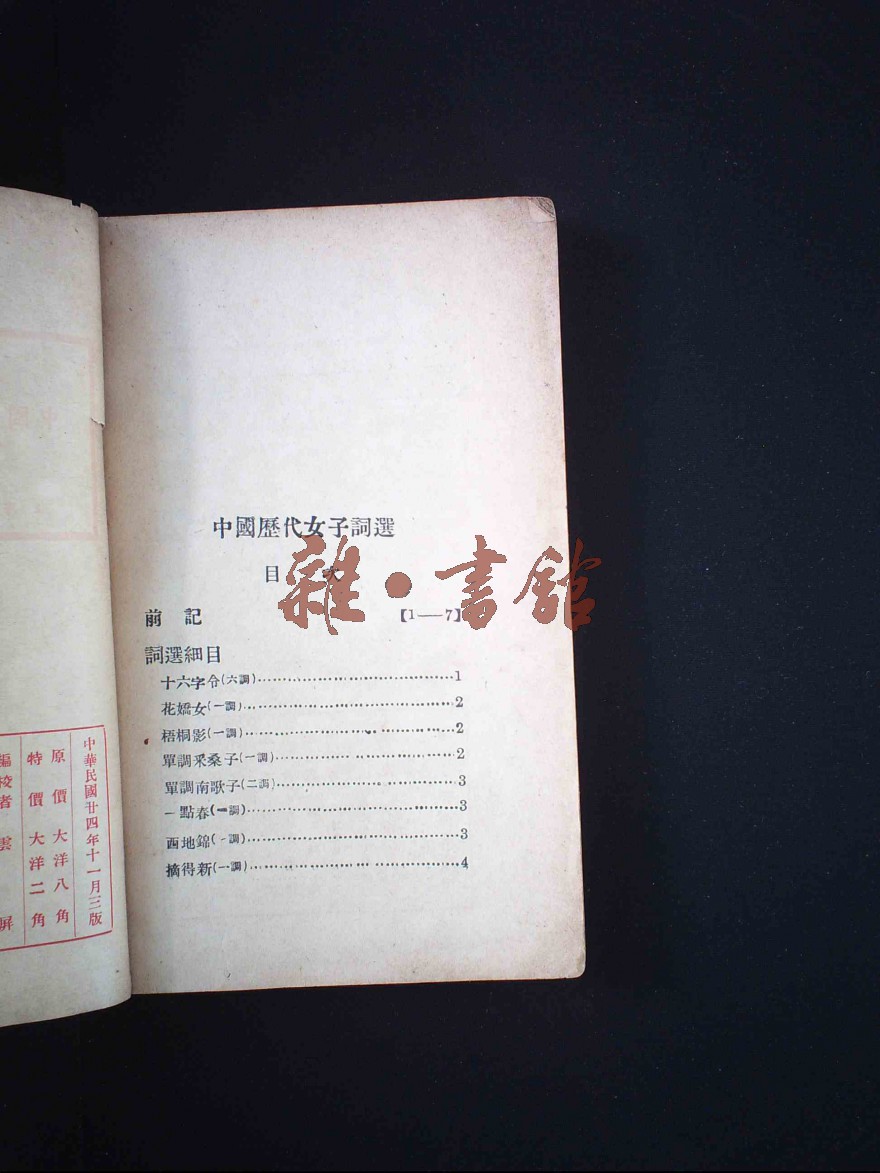 中國歷代女子詞選
目 次
前 記 【1——7】
詞選細目
十六字令(六調)……………………………1
花嬌女(一調)……………………………2
梧桐影(一調)……………………………2
單調采桑子(一調)……………………………2
單調南歌子(二調)……………………………3
一點春(一調)……………………………3
西地錦(一調)……………………………3
摘得新(一調)……………………………4
雜·書館
中華民國廿四年十一月三版
原價大洋八角
特價大洋二角
編校者 雲屏